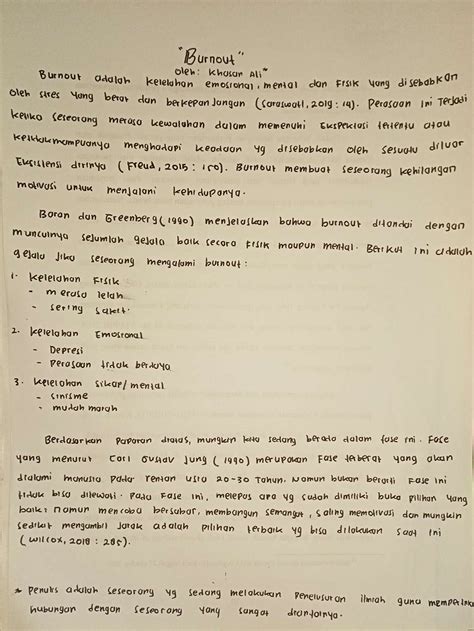 "Burnout"
Oleh: Khasan Ali*
Burnout adalah kelelahan emosional, mental dan Fisik yang disebabkan
oleh stres yang berat dan berkepanjangan (Saraswati, 2019 : 14). Perasaan ini Terjadi
ketika seseorang merasa kewalahan dalam memenuhi Ekspektasi tertentu atau
ketidakmampuanya menghadapi keadaan yg disebabkan oleh sesuatu diluar
Eksistensi dirinya (Freud, 2015 : 150). Burnout membuat seseorang kehilangan
motivasi untuk menjalani kehidupanya.
Baran dan Greenberg (1990) menjelaskan bahwa burnout ditandai dengan
munculnya sejumlah gejala baik secara Fisik maupun mental. Berikut ini adalah
gejala jika seseorang mengalami burnout :
1. Kelelahan Fisik
- merasa lelah
- sering sakit.
2. Kelelahan Emosional
- Depresi
- Perasaan tidak berdaya
3. Kelelahan sikap/mental
- sinisme
- mudah marah
Berdasarkan Paparan diatas, mungkin kita sedang berada dalam fase ini. Fase
yang menurut Carl Gustav Jung (1990) merupakan Fase terberat yang akan
dialami manusia pada rentan usia 20-30 Tahun. Namun bukan berarti Fase ini
tidak bisa dilewati. Pada Fase ini, melepas apa yg sudah dimiliki buka pilihan yang
baik; namun mencoba bersabar, membangun semangat, saling memotivasi dan mungkin
sedikit mengambil jarak adalah pilihan terbaik yg bisa dilakukan saat ini
(Wilcox, 2018 : 285).
* Penulis adalah seseorang yg sedang melakukan Penelusuran ilmiah guna
hubungan dengan seseorang yang sangat dicintainya.